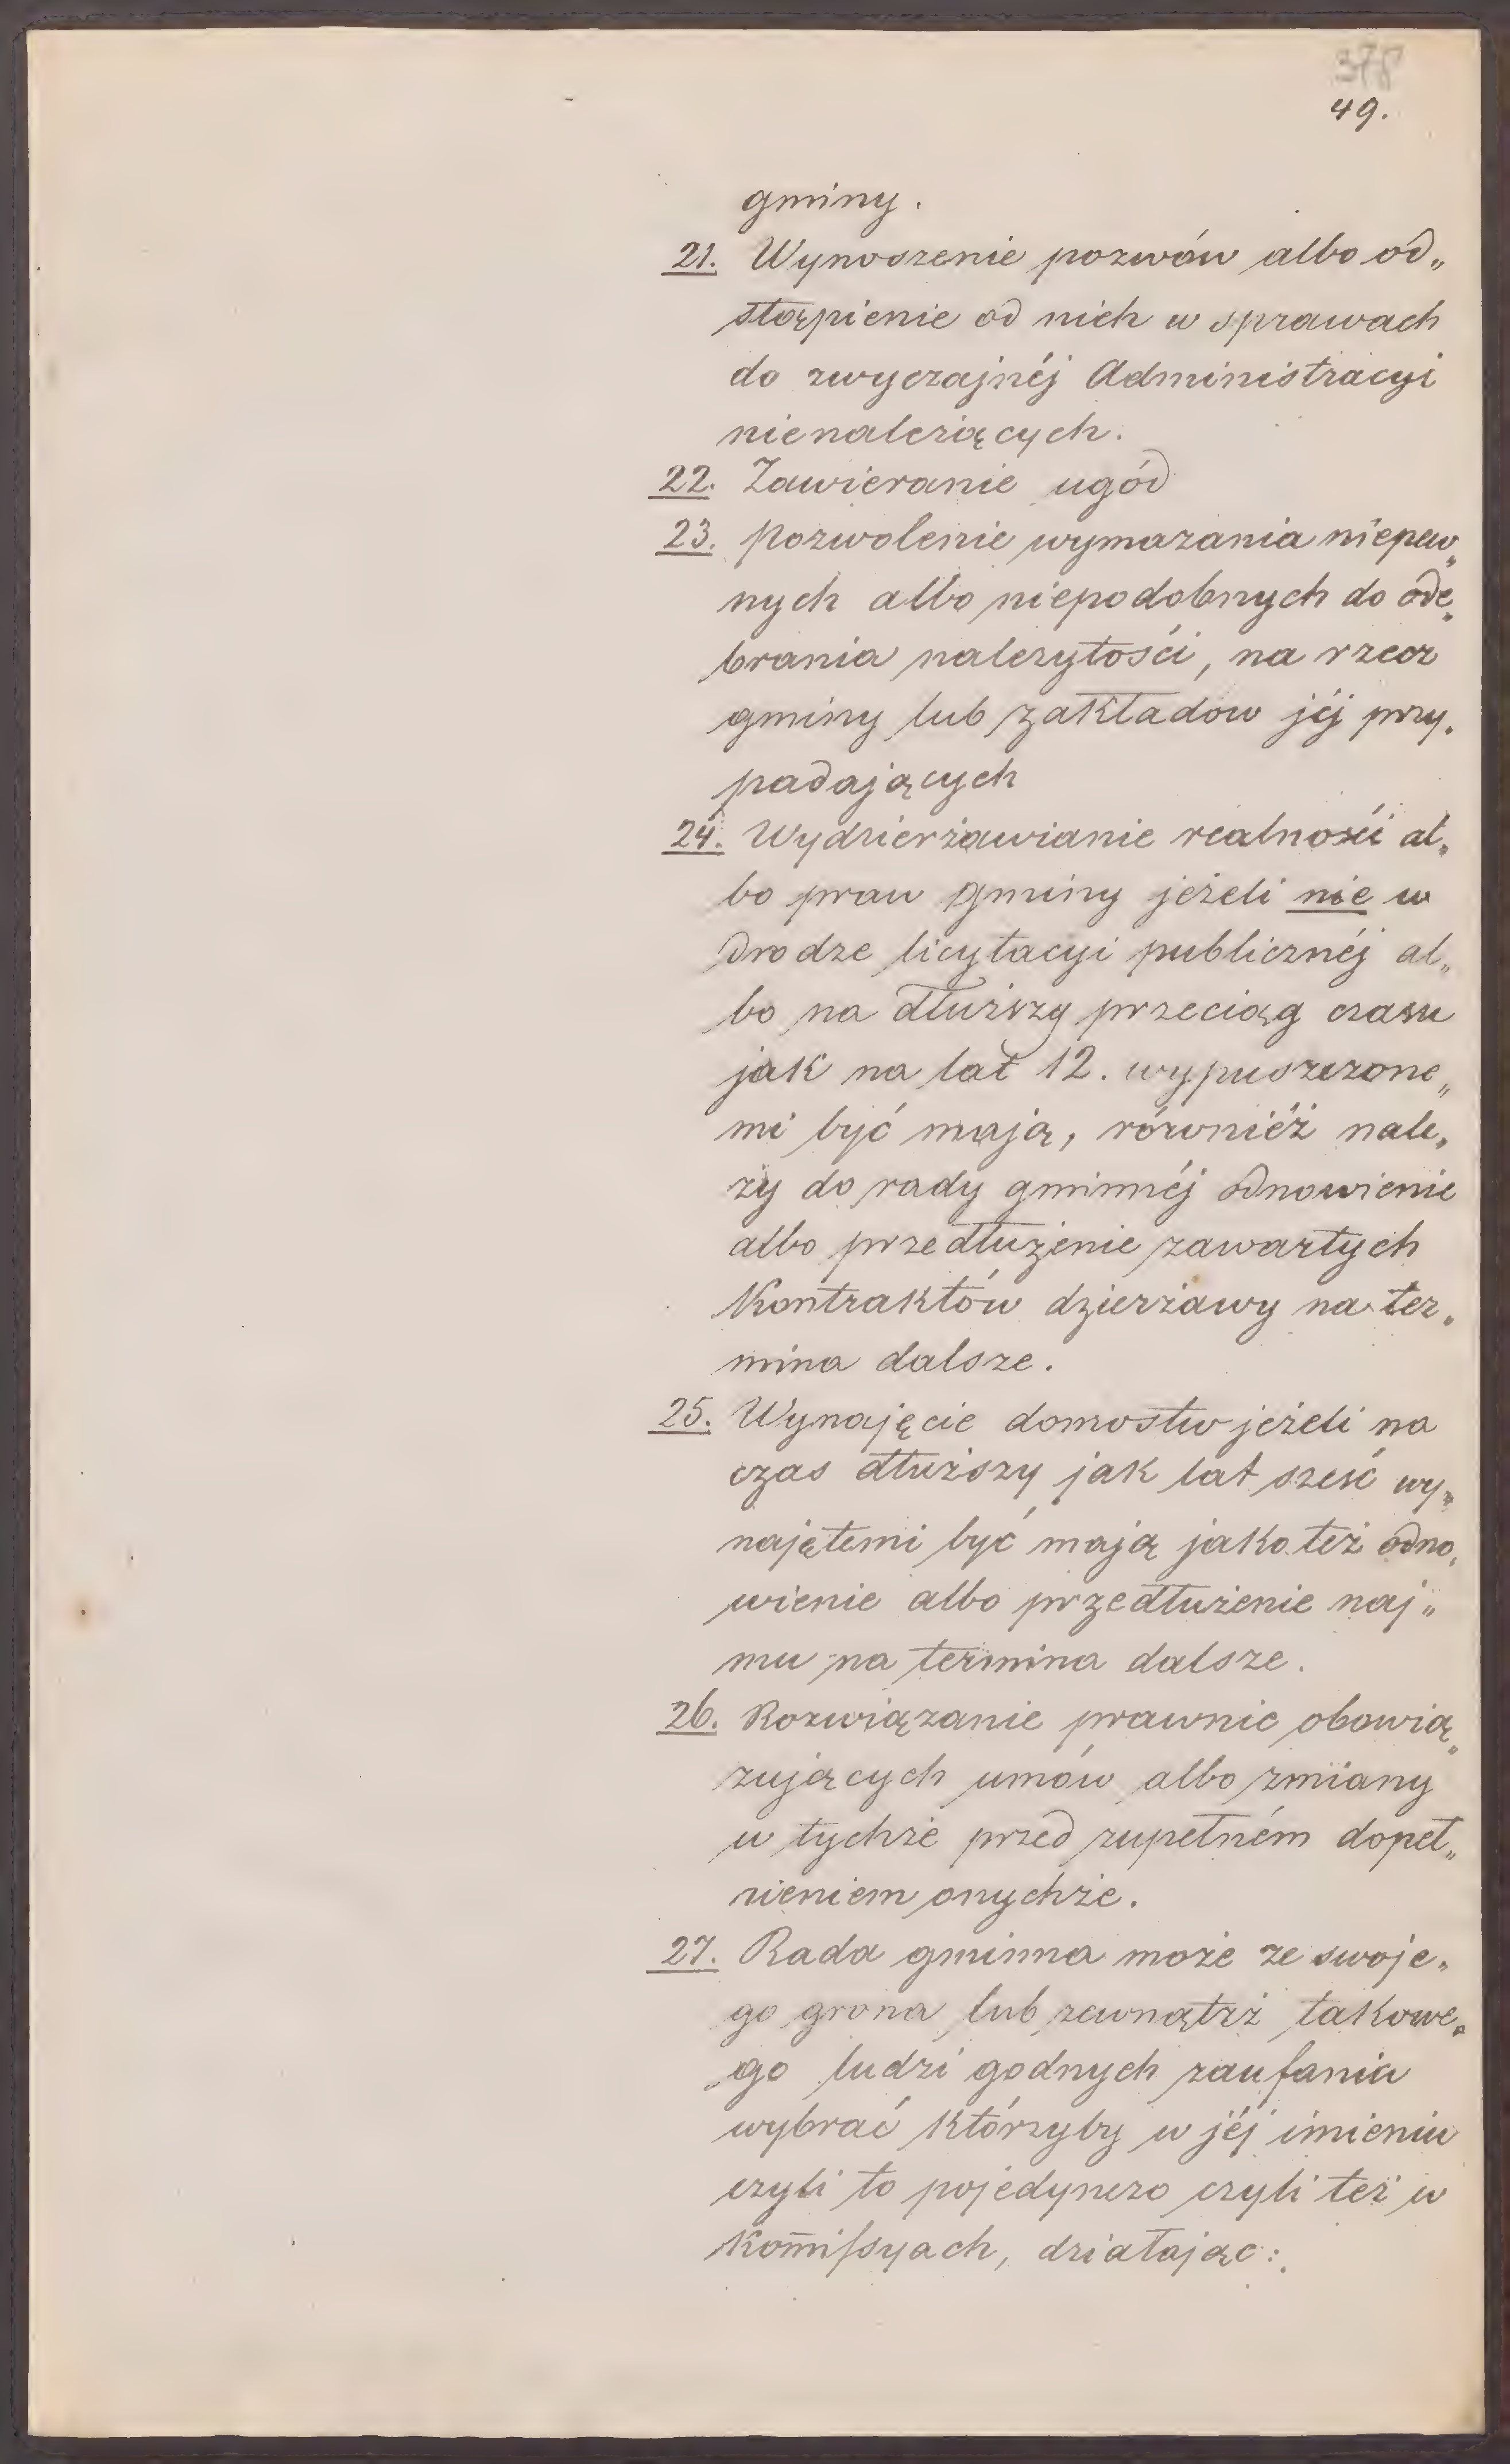 378
49.
gminy.
21. Wynoszenie pozwów albo od„
stąpienie od nich w sprawach
do zwyczajnéj Administracyi
nienależiących.
22. Zawieranie ugód
23. pozwolenie wymazania niepew„
nych albo niepodobnych do ode„
brania należytości, na rzecz
gminy lub zakładow jéj przy„
padających
24. Wydzierżawianie realnosći al„
bo praw gminy jeżeli nie w
drodze licytacyi publicznéj al„
bo na dłuższy przeciąg czasu
jak na lat 12. wypuszczone„
mi być mają, równiéż nale„
ży do rady gminnéj odnowienie
albo przedłużenie zawartych
Kontraktów dzierżawy na ter„
mina dalsze.
25. Wynajęcie domostw jeżeli na
czas dłuższy jak lat sześć wy„
najętemi być mają jako też odno„
wienie albo przedłużenie naj„
mu na termina dalsze.
26. Rozwiązanie prawnie obowią„
zujących umów albo zmiany
w tychże przed zupełném dopeł„
nieniem onychże.
27. Rada gminna może ze swoje„
go grona lub zewnątrż takowe„
go ludzi godnych zaufania
wybrać którzyby w jéj imieniu
czyli to pojedynczo czyli też w
Kom̄ifsyach, działając: